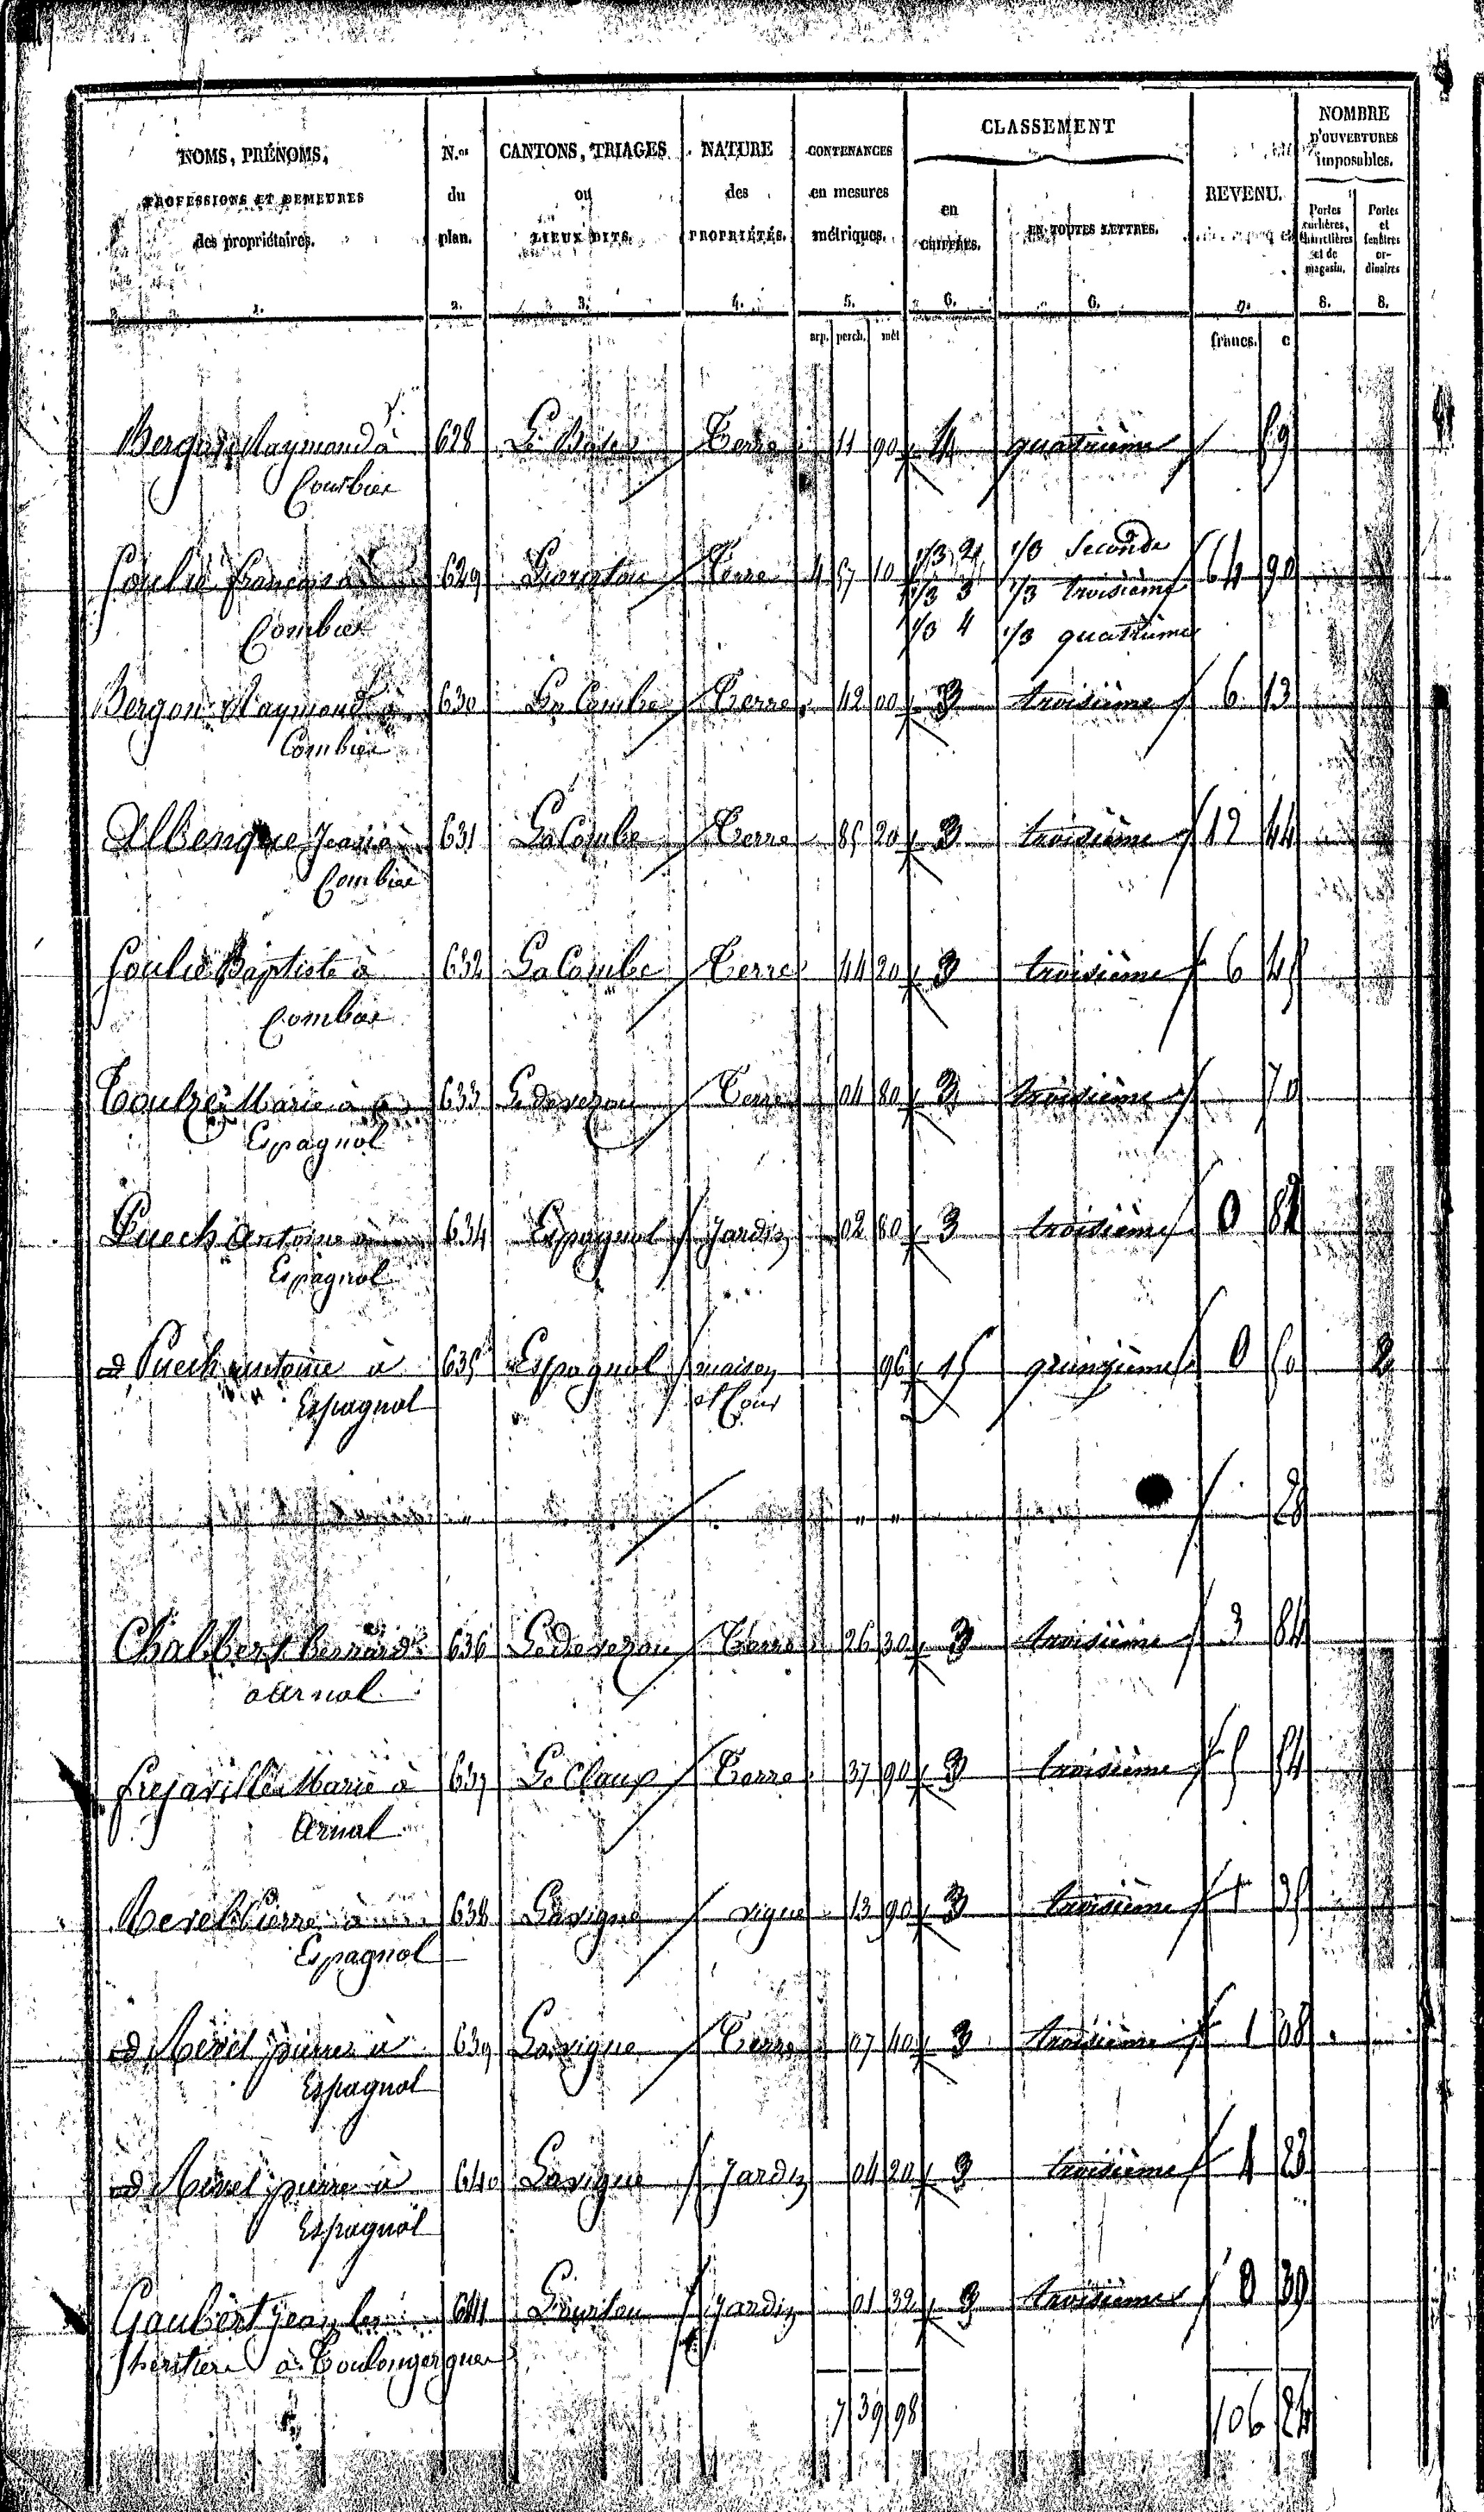 NOMS, PRÉNOMS, PROFESSIONS ET DEMEURES des propriétaires. 1.
N.os du plan. 2.
CANTONS, TRIAGES ou LIEUX DITS. 3.
NATURE des PROPRIÉTÉS. 4.
CONTENANCES en mesures métriques. 5.
CLASSEMENT
en CHIFFRES. 6.
EN TOUTES LETTRES. 6.
REVENU. 7.
NOMBRE D'OUVERTURES imposables.
Portes cochères, charretières et de magasin. 8.
Portes et fenêtres ordinaires 8.
arp. perch. mèt francs. c
Bergon Raymond à 628 Terre 11 90 4 quatrième 89
Combier
1/3 2 1/3 Seconde
Soulié françois à 629 Terre 4 57 10 1/3 3 1/3 troisième 64 90
Combier 1/3 4 1/3 quatrième
Bergon Raymond à 630 La Combe Terre 42 00 3 troisième 6 13
Combier
Albenque Jean à 631 La Combe Terre 85 20 3 troisième 12 44
Combier
Soulié Baptiste à 632 La Combe Terre 44 20 3 troisième 6 45
Combier
Marie à 633 Ledevezou Terre 04 80 3 troisième 70
Espagnol
Puech Antoine à 634 Espagnol Jardin 02 80 3 troisième 0 82
Espagnol
d Puech antoine à 635 Espagnol maison 96 15 quinzième 0 60 2
Espagnol et Cour
" " " 28
Chalbert Bernard 636 Ledevezou Terre 26 30 3 troisième 3 84
a Arnal
frejaville Marie à 637 Le Claux Terre 37 90 3 troisième 5 54
Arnal
Mevel Pierre à 638 Lavigne vigne 13 90 3 troisième 1 35
Espagnol
d Mevel pierre à 639 Lavigne Terre 07 40 3 troisième 1 08
Espagnol
d Mevel pierre à 640 Lavigne Jardin 04 20 3 troisième 1 23
Espagnol
Gaubert Jean les 641 jardin 01 32 3 troisième 0 39
héritiers à Toulongergues
7 39 98 106 24